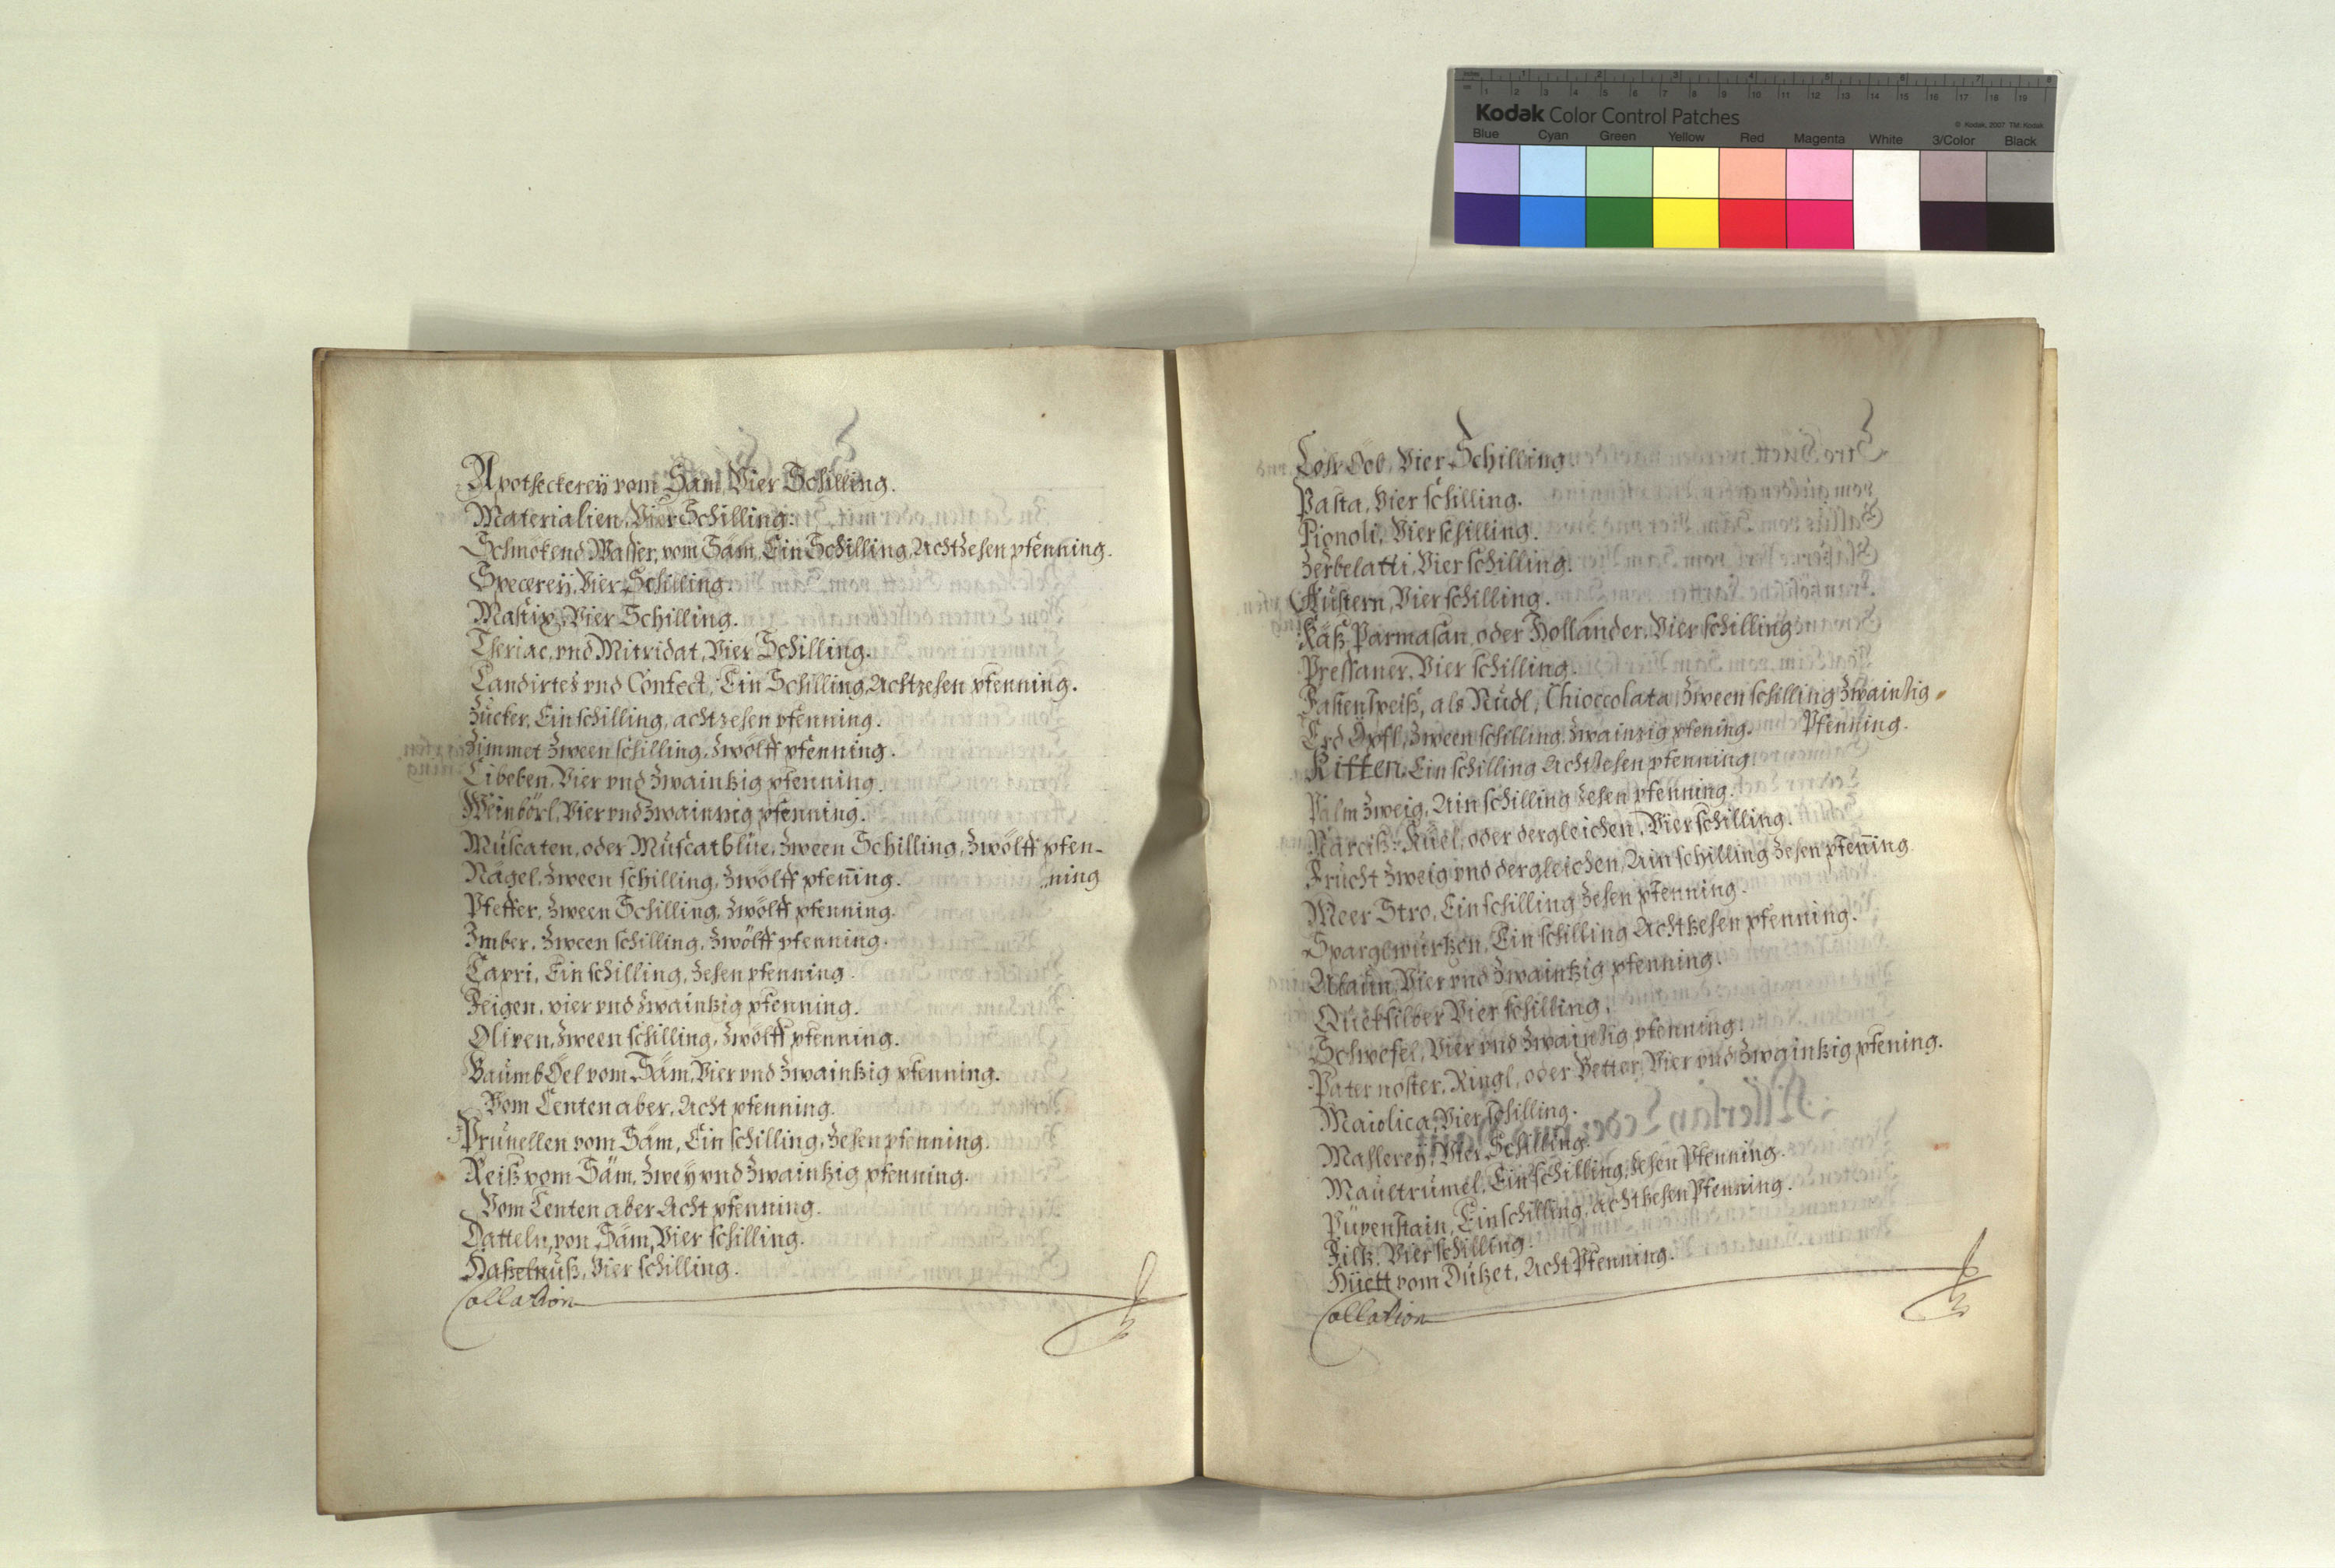 Kodak Color Control Patches
© Kodak, 2007 TM: Kodak
Blue Cyan Green Yellow Red Magenta White 3/Color Black
Apotheckereÿ vom Säm, Vier Schilling.
Materialien, Vier Schilling.
Schmökend Wasser, vom Säm, Ein Schilling, Achtzehen pfenning.
Specereÿ, Vier Schilling.
Mastix, Vier Schilling.
Theriac, vnd Mitridat, Vier Schilling.
Candirtes vnd Confect, Ein Schilling, Achtzehen pfenning.
Zucker, Ein schilling, achtzehen pfenning.
Zimmet Zween schilling, Zwölff pfenning.
Cibeben, Vier vnd Zwaintzig pfenning.
Weinbörl, Vier vnd Zwaintzig pfenning.
Muscaten, oder Muscatblüe, Zween Schilling, Zwölff pfen-
Nägel, Zween schilling, Zwölff pfenning. ning
Pfeffer, Zween Schilling, Zwölff pfenning.
Imber, Zween schilling, Zwölff pfenning.
Capri, Ein schilling, Zehen pfenning.
Feigen, vier vnd Zwaintzig pfenning.
Oliven, Zween schilling, Zwölff pfenning.
Baumb Öel vom Säm, Vier vnd Zwaintzig pfenning.
Vom Centen aber, Acht pfenning.
Prunellen vom Säm, Ein schilling, Zehen pfenning.
Reiß vom Säm, Zweÿ vnd Zwaintzig pfenning.
Vom Centen aber Acht pfenning.
Datteln, von Säm, Vier schilling.
Haßelnuß, Vier schilling.
Collation
Lohr Öel, Vier Schilling.
Pasta, Vier schilling.
Pignoli, Vier schilling.
Zerbelatti, Vier schilling.
Austern, Vier schilling.
Käß, Parmasan, oder Hollander, Vier schilling.
Pressaner, Vier schilling.
Fastenspeiß, als Nudl, Chioccolata, Zween schilling Zwaintzig
Erd Öpfl, Zween schilling, Zwainzig pfening. Pfenning.
Kitten, Ein schilling Achtzehen pfenning.
Palm Zweig, Ain schilling Zehen pfenning.
Narciß-Kiel, oder dergleichen, Vier schilling.
Frucht Zweig vnd dergleichen, Ain schilling Zehen pfenning.
Meer Stro, Ein schilling Zehen pfenning.
Sparglwurtzen, Ein schilling Achtzehen pfenning.
Alaun, Vier vnd Zwaintzig pfenning.
Quecksilber Vier schilling.
Schwefel, Vier vnd Zwaintzig pfenning.
Pater noster, Ringl, oder Better, Vier vnd Zwaintzig pfening.
Maiolica, Vier schilling.
Mahlereÿ, Vier Schilling.
Maultrumel, Ein schilling, Zehen Pfenning.
Ein schilling, achtzehen Pfenning.
Filtz, Vier schilling.
Hüett vom Dutzet, Acht Pfenning.
Collation